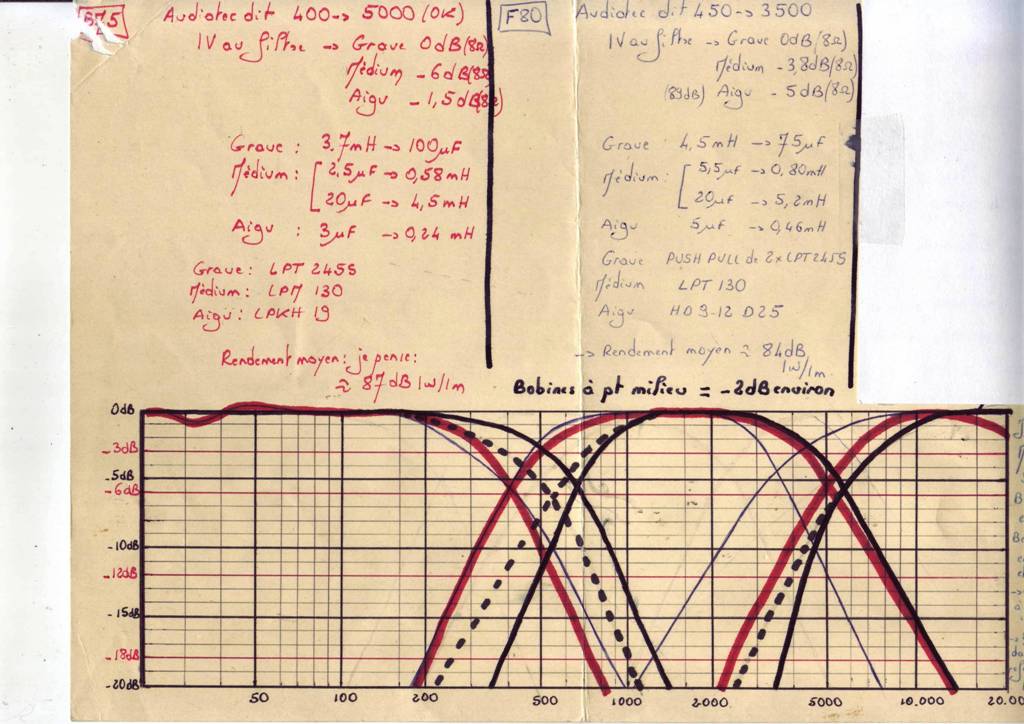 B75
Audiotec dit 400 -> 5000 (OK)
IV au filtre -> Grave 0dB (8Ω)
Médium - 6dB (8Ω
Aigu - 1,5dB (8Ω)
Grave : 3.7mH -> 100µF
Médium : 2,5µF -> 0,58mH
20µF -> 4,5mH
Aigu : 3µF -> 0,24 mH
Grave : LPT 245S
Médium : LPM 130
Aigu : LPKH 19
Rendement moyen : je pense :
≈ 87dB 1w/1m
F80
Audiotec dit 450 -> 3500
IV au filtre -> Grave 0dB (8Ω)
Médium - 3,8dB (8Ω)
(89dB) Aigu - 5dB (8Ω)
Grave 4,5mH -> 75µF
Médium : 5,5µF -> 0,80mH
20µF -> 5,2mH
Aigu 5µF -> 0,46mH
Grave PUSH PULL de 2x LPT245S
Médium LPT 130
Aigu HD 9-12 D25
-> Rendement moyen ≈ 84dB
1w/1m
Bobines à pt milieu = -2dB environ
0dB
-3dB
-5dB
-6dB
-10dB
-12dB
-15dB
-18dB
-20dB
50 100 200 500 1000 2000 5000 10.000 20.00